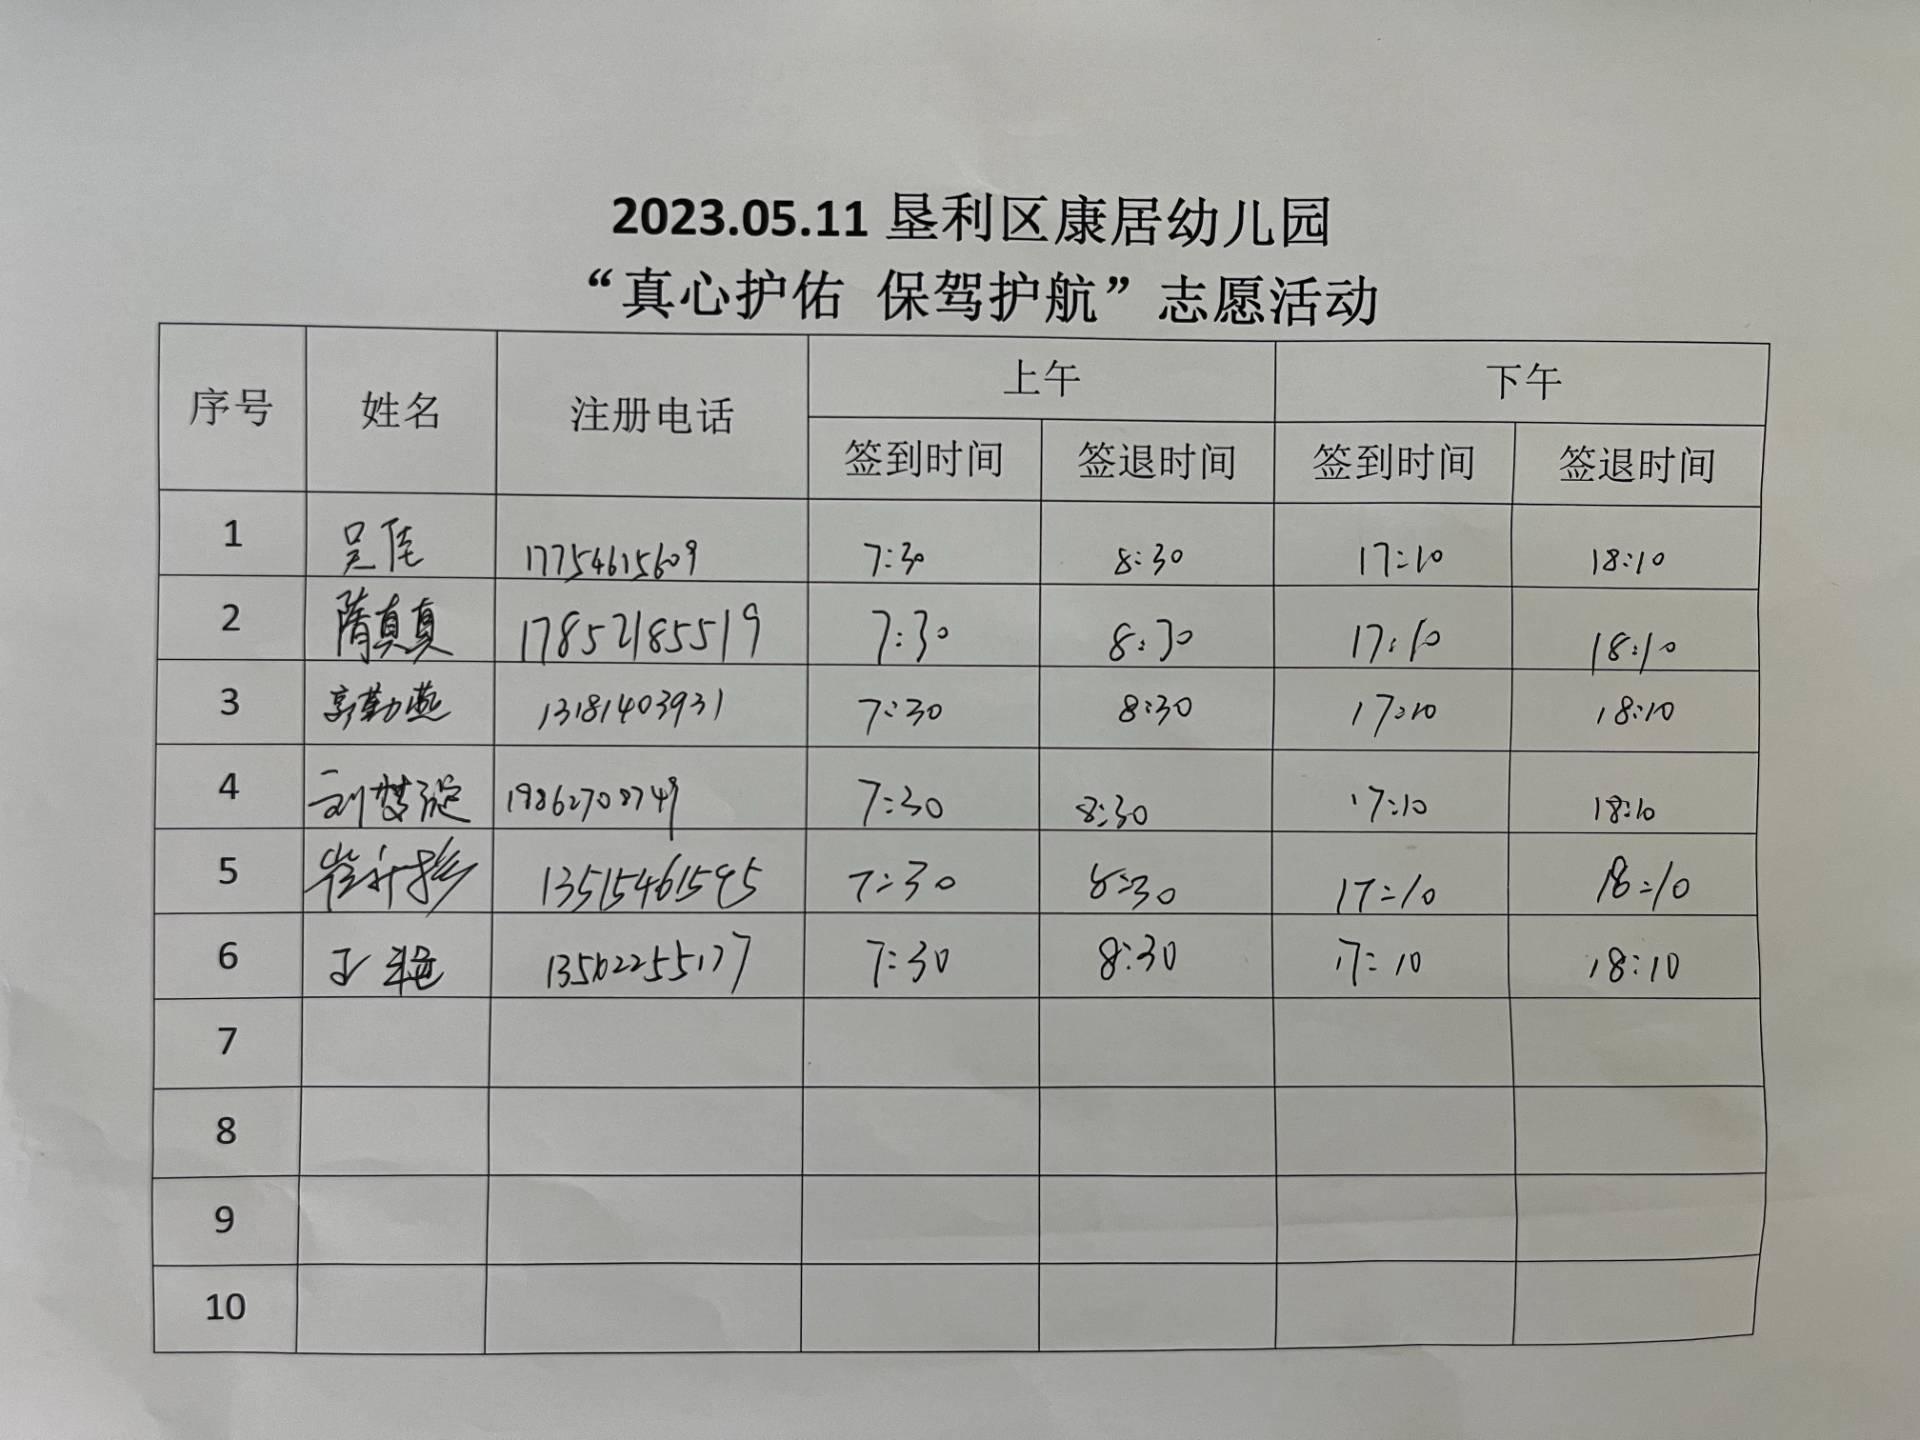 2023.05.11 垦利区康居幼儿园
“真心护佑 保驾护航”志愿活动
序号 姓名 注册电话 上午 下午
签到时间 签退时间 签到时间 签退时间
1 吴佳 17754615609 7:30 8:30 17:10 18:10
2 隋真真 17852185519 7:30 8:30 17:10 18:10
3 郭勤燕 13181403931 7:30 8:30 17:10 18:10
4 刘梦 19862708749 7:30 8:30 17:10 18:10
5 崔 13515461595 7:30 8:30 17:10 18:10
6 王艳 13562255177 7:30 8:30 17:10 18:10
7
8
9
10